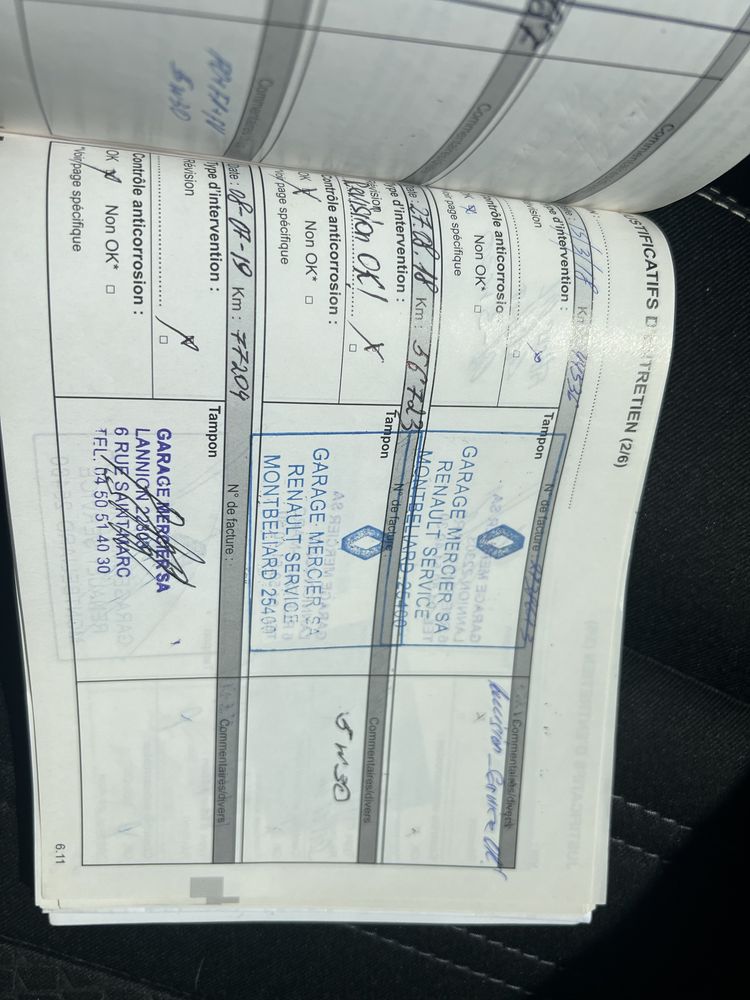 JUSTIFICATIFS D'ENTRETIEN (2/6)
Date : 15/3/18 Km :
N° de facture :
Commentaires/divers
Type d'intervention :
Tampon
Révision
Contrôle anticorrosion :
OK Non OK* □
*Voir page spécifique
GARAGE MERCIER SA
RENAULT SERVICE
MONTBELIARD 25400
Date : 27.08.18 Km : 56723
N° de facture :
Commentaires/divers
Type d'intervention :
Tampon
Révision
Révision OK!
Contrôle anticorrosion :
OK Non OK* □
*Voir page spécifique
GARAGE MERCIER SA
RENAULT SERVICE
MONTBELIARD 25400
5W30
Date : 08-07-19 Km : 77209
N° de facture :
Commentaires/divers
Type d'intervention :
Tampon
Révision
Contrôle anticorrosion :
OK Non OK* □
*Voir page spécifique
GARAGE MERCIER SA
LANNION 22300
6 RUE SAINT MARC
TEL. 04 50 51 40 30
6.11
Commentaires
5W30